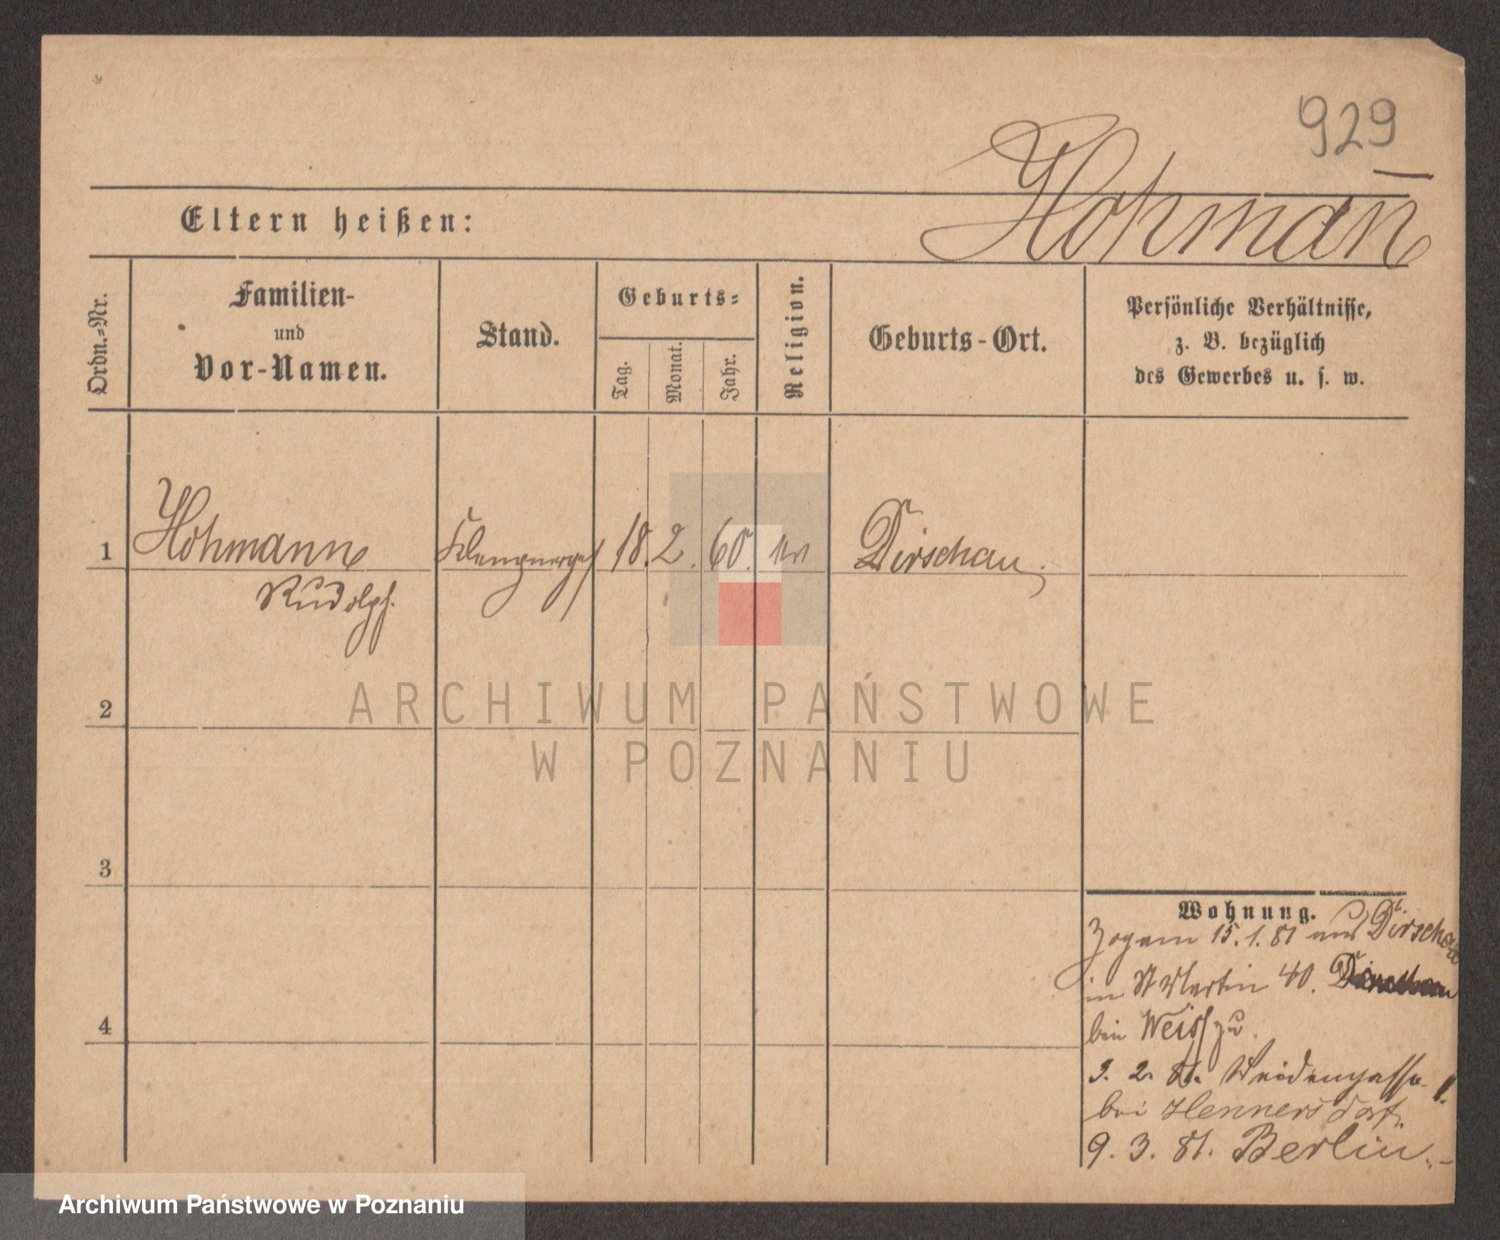 929
Hohman̄
Eltern heißen:
Ordn.-Nr.
Familien-
und
Vor-Namen.
Stand.
Geburts-
Tag.
Monat.
Jahr.
Religion.
Geburts-Ort.
Persönliche Verhältnisse,
z. B. bezüglich
des Gewerbes u. s. w.
1 Hohmann 18. 2. 60. ev Dirschau.
Rudolph.
ARCHIWUM PAŃSTWOWE
W POZNANIU
2
3
4
Wohnung.
Zog am 15.1.81 aus Dirschau
in St Martin 40.
bei Weiss zu.
9. 2. 81. Weidengasse 1.
bei Hennersdorf.
9. 3. 81. Berlin.
Archiwum Państwowe w Poznaniu